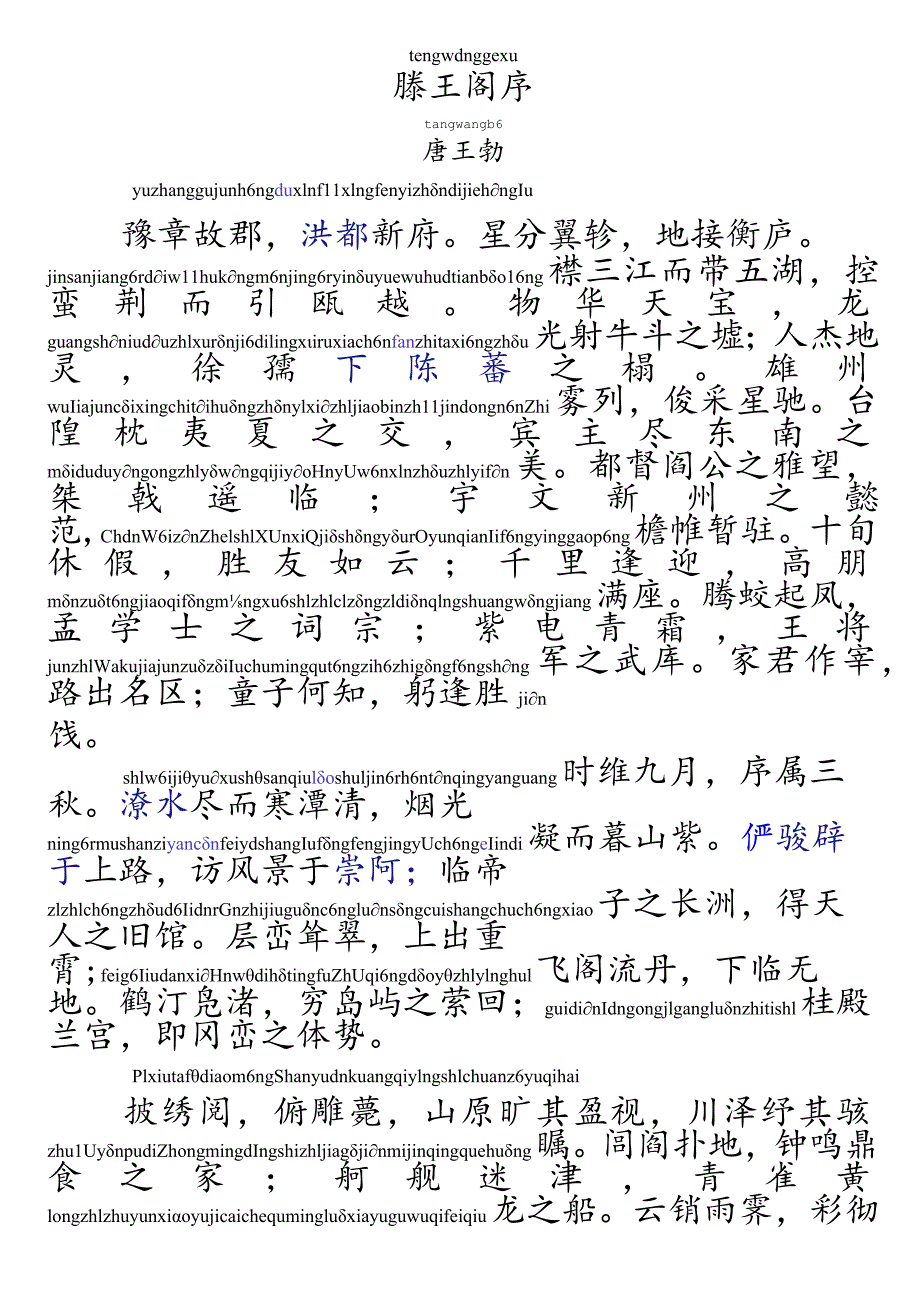 tengwdnggexu
滕王阁序
tangwangb6
唐王勃
yuzhanggujunh6ngduxlnf11xlngfenyizhδndijieh∂ngIu
豫章故郡，洪都新府。星分翼轸，地接衡庐。
jinsanjiang6rd∂iw11huk∂ngm6njing6ryinδuyuewuhudtianbδo16ng 襟三江而带五湖，控
蛮荆而引瓯越。物华天宝，龙
guangsh∂niud∂uzhlxurδnji6dilingxuiruxiach6nfanzhitaxi6ngzhδu 光射牛斗之墟；人杰地
灵，徐孺下陈蕃之榻。雄州
wuIiajuncδixingchit∂ihuδngzhδnylxi∂zhljiaobinzh11jindongn6nZhi 雾列，俊采星驰。台
隍枕夷夏之交，宾主尽东南之
mδiduduy∂ngongzhlyδw∂ngqijiy∂oHnyUw6nxlnzhδuzhlyif∂n 美。都督阎公之雅望，
棨戟遥临；宇文新州之懿
范，ChdnW6iz∂nZhelshlXUnxiQjiδshδngyδurOyunqianIif6ngyinggaop6ng 襜帷暂驻。十旬
休假，胜友如云；千里逢迎，高朋
mδnzuδt6ngjiaoqifδngm⅛ngxu6shlzhlclzδngzldiδnqlngshuangwδngjiang 满座。腾蛟起凤，
孟学士之词宗；紫电青霜，王将
junzhlWakujiajunzuδzδiIuchumingqut6ngzih6zhigδngf6ngsh∂ng 军之武库。家君作宰，
路出名区；童子何知，躬逢胜 ji∂n
饯。
shlw6ijiθyu∂xushθsanqiulδoshuljin6rh6nt∂nqingyanguang 时维九月，序属三
秋。潦水尽而寒潭清，烟光
ning6rmushanziyancδnfeiydshangIufδngfengjingyUch6ngeIindi 凝而暮山紫。俨骏辟
于上路，访风景于崇阿；临帝
zlzhlch6ngzhδud6IidnrGnzhijiuguδnc6nglu∂nsδngcuishangchuch6ngxiao 子之长洲，得天
人之旧馆。层峦耸翠，上出重
霄；feig6Iiudanxi∂HnwθdihδtingfuZhUqi6ngdδoyθzhlylnghul 飞阁流丹，下临无
地。鹤汀凫渚，穷岛屿之萦回；guidi∂nIdngongjlgangluδnzhitishl 桂殿
兰宫，即冈峦之体势。
Plxiutafθdiaom6ngShanyudnkuangqiylngshlchuanz6yuqihai
披绣闼，俯雕甍，山原旷其盈视，川泽纡其骇
zhu1UyδnpudiZhongmingdIngshizhljiagδji∂nmijinqingquehuδng 瞩。闾阎扑地，钟鸣鼎
食之家；舸舰迷津，青雀黄
longzhlzhuyunxiαoyujicaichequmingluδxiayuguwuqifeiqiu 龙之船。云销雨霁，彩彻